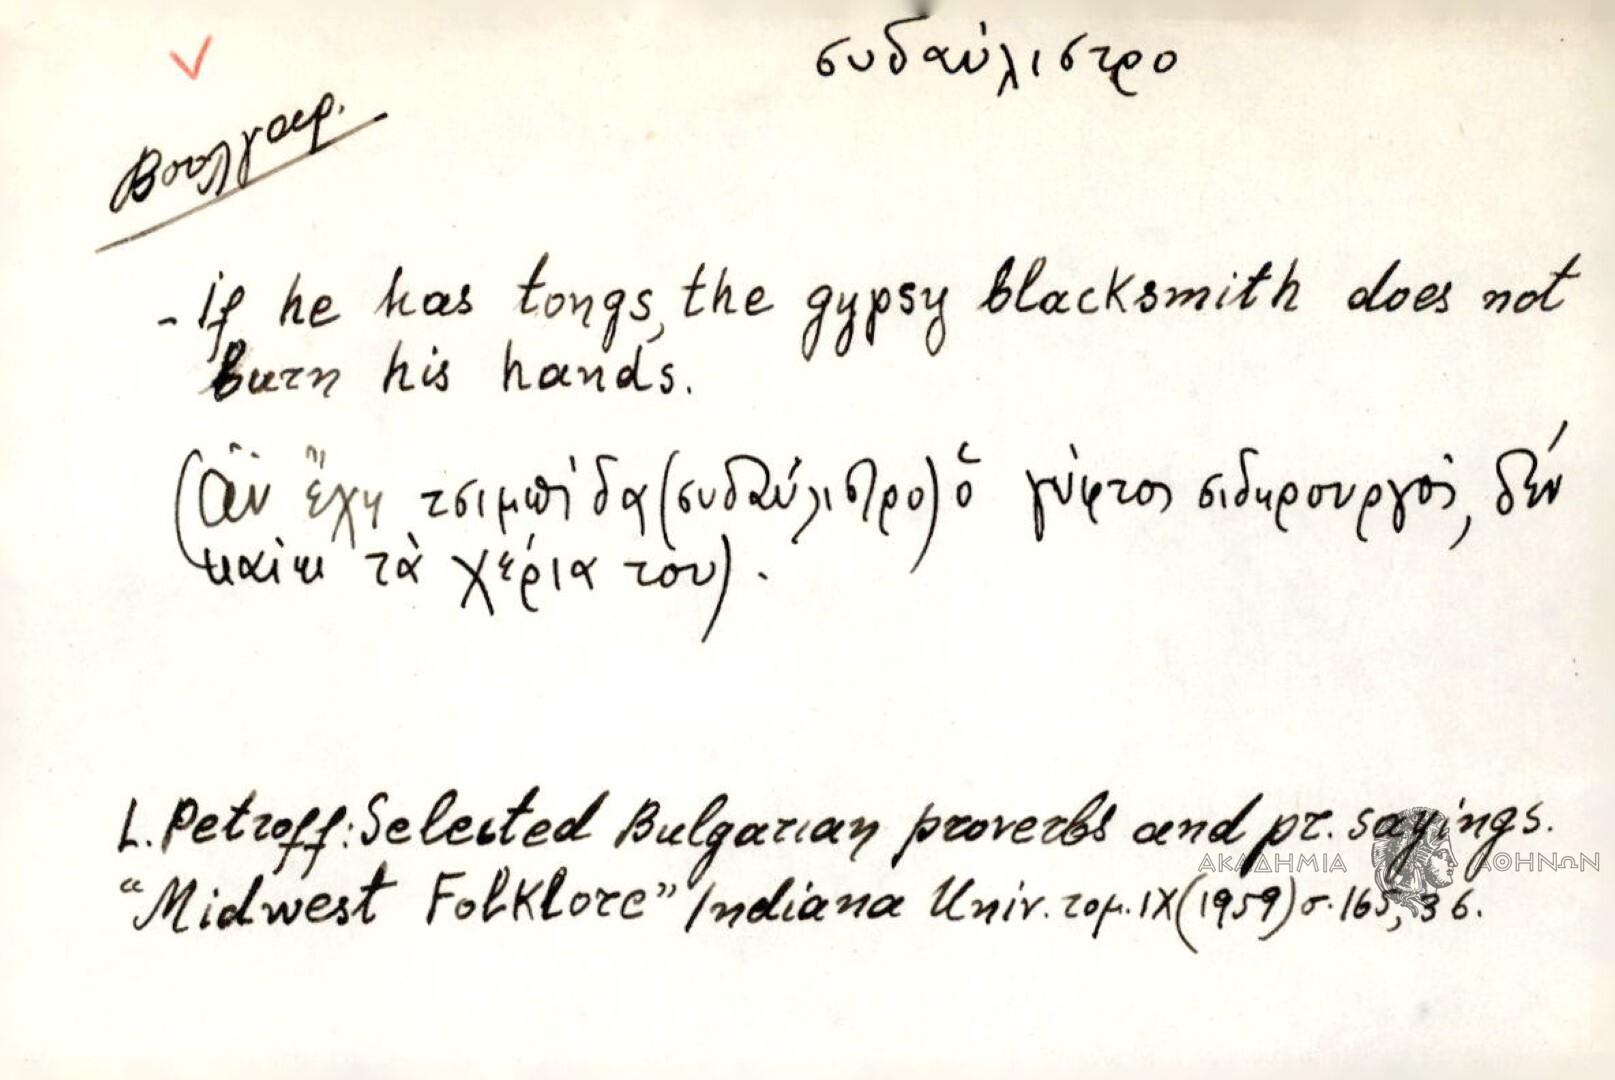 συδαύλιστρο
Βουλγαρ.
- If he has tongs, the gypsy blacksmith does not
burn his hands.
(Ἂν ἔχη τσιμπίδα (συδαύλιστρο) ὁ γύφτος σιδηρουργός, δέν
καίει τὰ χέρια του).
L. Petroff: Selected Bulgarian proverbs and pr. sayings.
"Midwest Folklore" Indiana Univ. τομ. IX (1959) σ. 165, 36.
ΑΚΑΔΗΜΙΑ ΑΘΗΝΩΝ